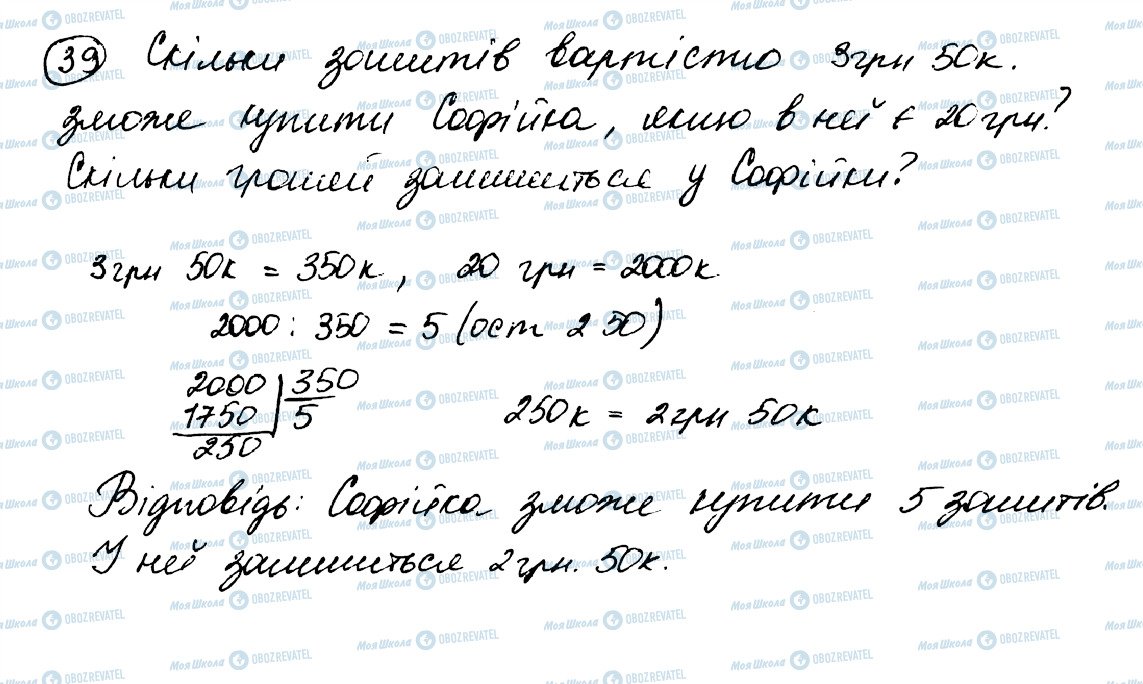 39 Скільки зошитів вартістю 3грн 50к.
зможе купити Софійка, якщо в неї є 20грн?
Скільки грошей залишиться у Софійки?
3грн 50к = 350к, 20 грн = 2000к.
2000 : 350 = 5 (ост 250)
2000 350
1750 5
250
250к = 2грн 50к
Відповідь: Софійка зможе купити 5 зошитів.
У неї залишиться 2грн. 50к.